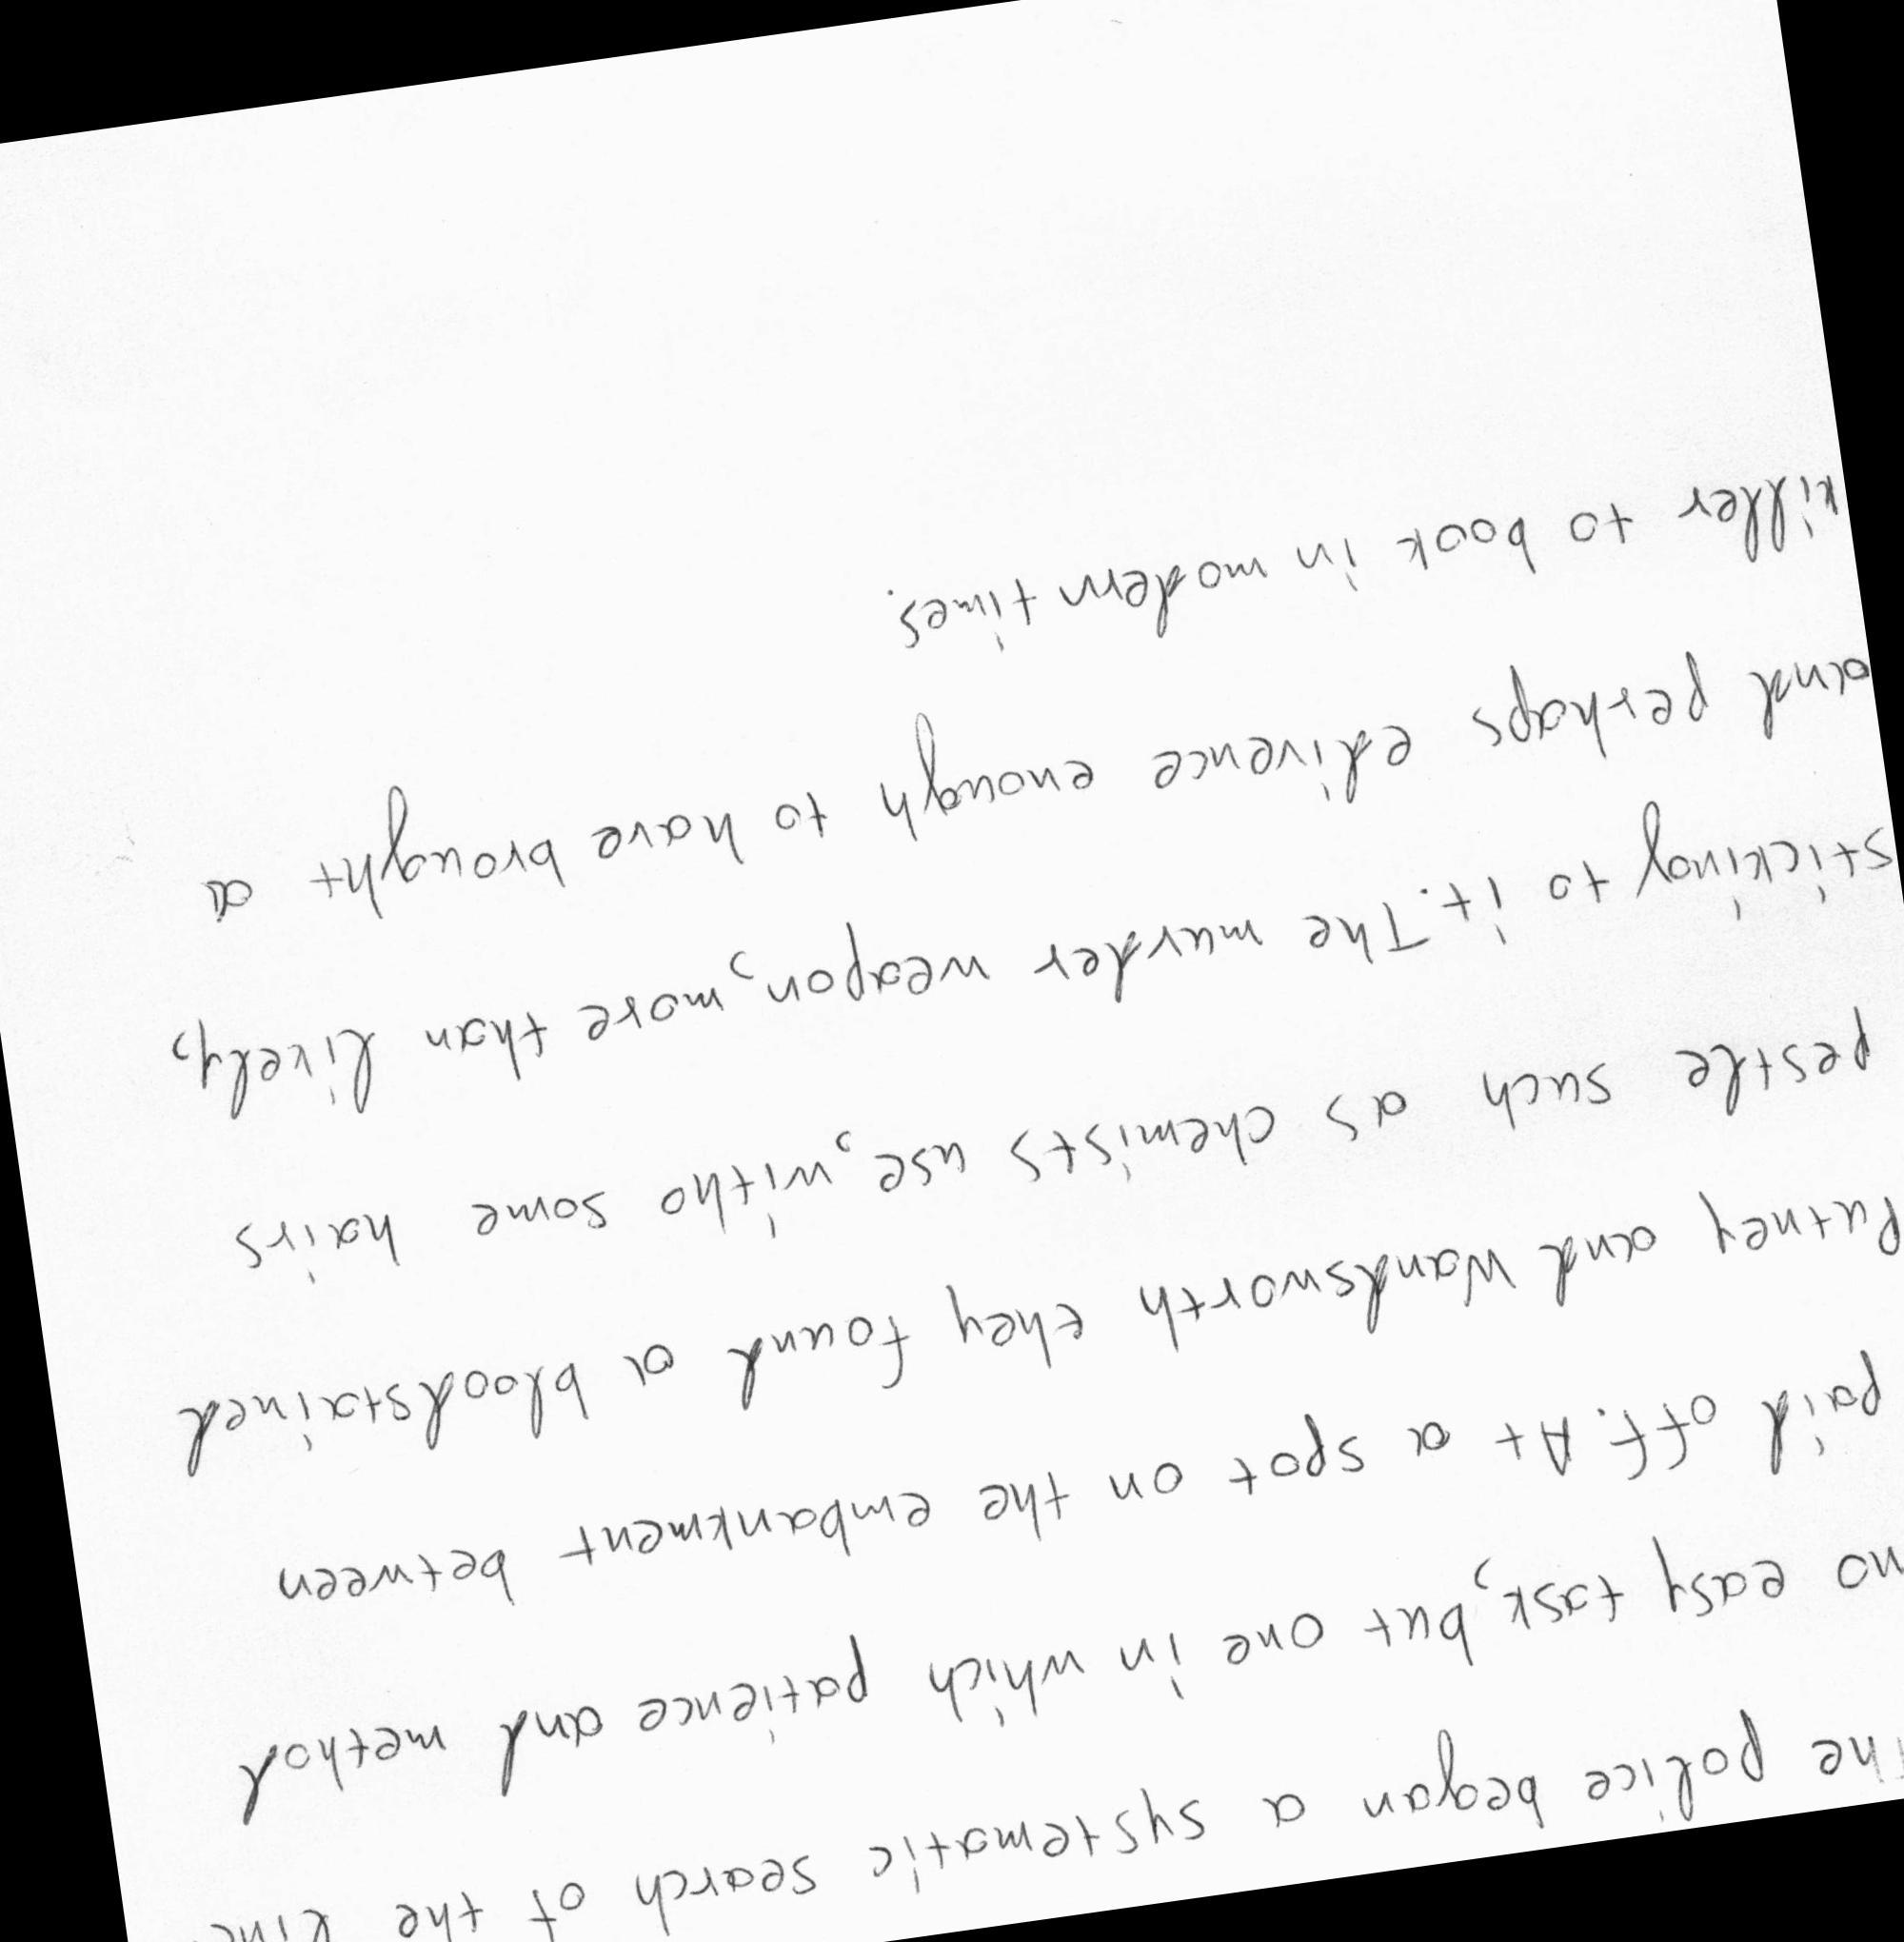 The police began a systematic search of the line
no easy task, but one in which patience and method
paid off. At a spot on the embankment between
Putney and Wandsworth they found a bloodstained
pestle such as chemists use, witho some hairs
sticking to it. The murder weapon, more than likely,
and perhaps edivence enough to have brought a
killer to book in modern times.